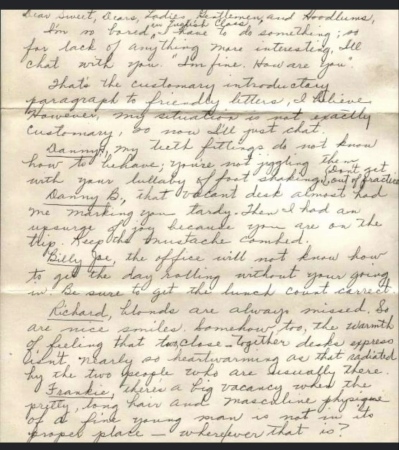 Dear Sweet, Dears, Ladies, Gentlemen, and Hoodlums,
I'm so bored, in English class, I have to do something; so
for lack of anything more interesting, I'll
chat with you. "I'm fine. How are you".
That's the customary introductory
paragraph to friendly letters, I believe
However, my situation is not exactly
customary, so now I'll just chat.
Danny, my teeth fittings do not know
how to behave; you're not jiggling them
with your lullaby of foot shaking. (Don't get out of practice
Danny B., that vacant desk almost had
me marking you tardy. Then I had an
upsurge of joy because you are on the
trip. Keep the mustache combed.
Billy Joe, the office will not know how
to get the day rolling without your going
in. Be sure to get the lunch count correct
Richard, blonds are always missed. So
are nice smiles. Somehow, too, the warmth
of feeling that too close together desks express
isn't nearly so heartwarming as that radiated
by the two people who are usually there.
Frankie, there's a big vacancy when the
pretty, long hair and masculine physique
of a fine young man is not in its
proper place — wherever that is?